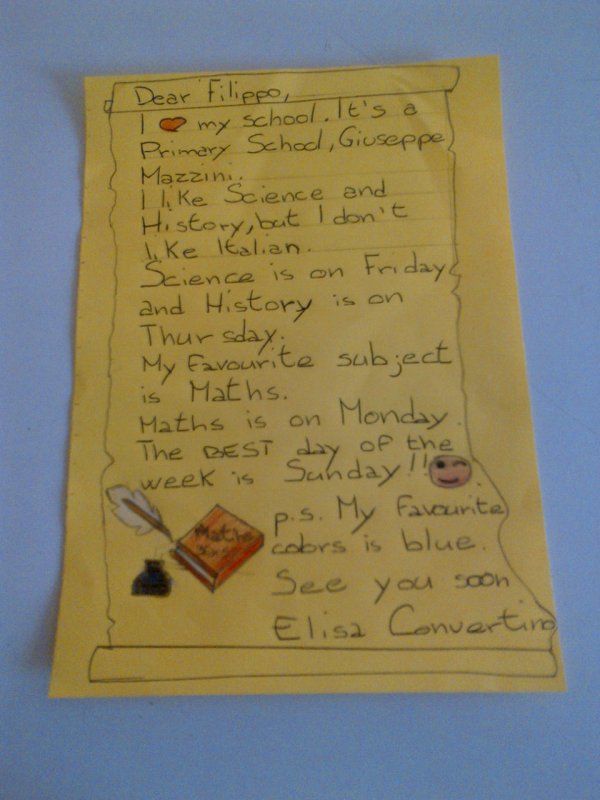 Dear Filippo,
I ❤ my school. It's a
Primary School, Giuseppe
Mazzini.
I like Science and
History, but I don't
like Italian.
Science is on Friday
and History is on
Thursday.
My favourite subject
is Maths.
Maths is on Monday.
The BEST day of the
week is Sunday!!
p.s. My favourite
colors is blue.
See you soon
Elisa Convertino
Maths